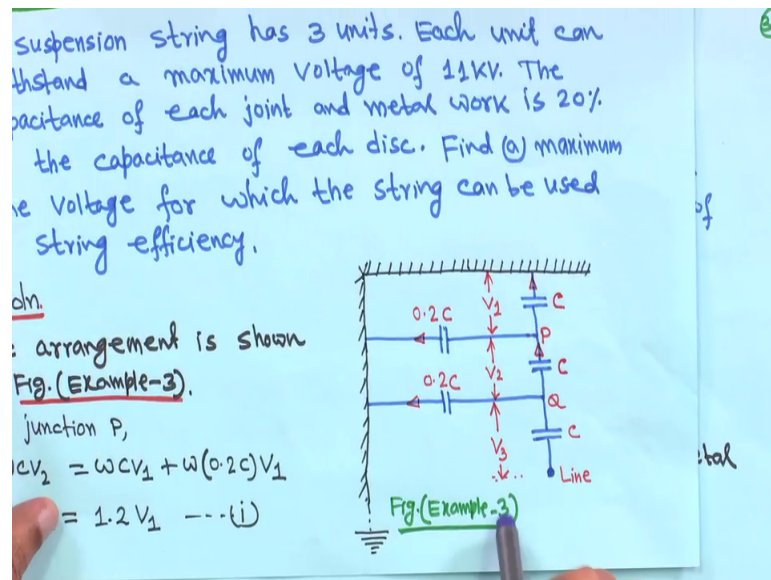 suspension string has 3 units. Each unit can
thstand a maximum voltage of 11KV. The
pacitance of each joint and metal work is 20%
the capacitance of each disc. Find (a) maximum
ne voltage for which the string can be used
string efficiency.
oln.
arrangement is shown
Fig. (Example-3).
junction P,
ωCV₁ + ω(0.2C)V₁
CV₂ =
= 1.2 V₁ ---- (i)
0.2C
V₁
C
P
0.2C
V₂
C
Q
V₃
C
Line
Fig. (Example-3)
of
etal